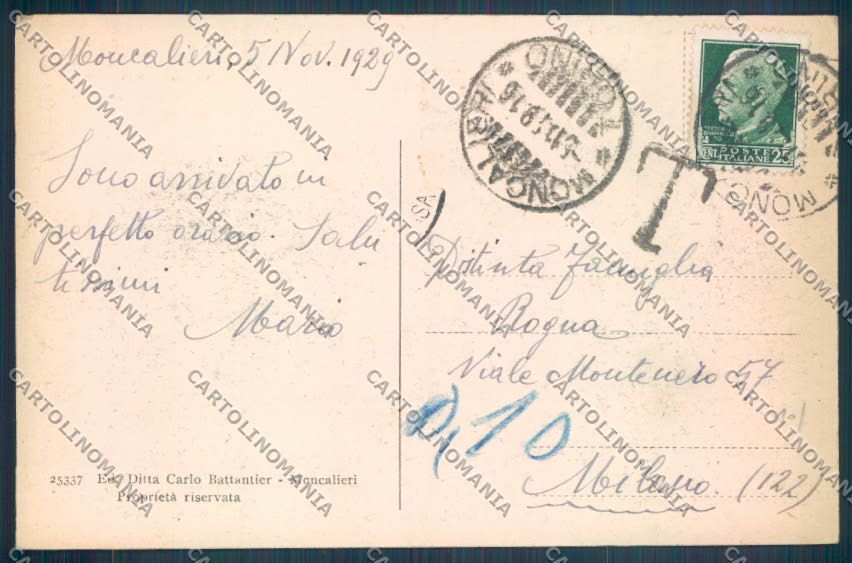 Moncalieri, 5 Nov. 1929
Sono arrivato in
perfetto orario. Salu
tissimi
Mario
25337 Ed. Ditta Carlo Battantier - Moncalieri
Proprietà riservata
MONCALIERI * TORINO *
T
POSTE
CENT. ITALIANE 25
SA
Distinta Famiglia
Rogna
Viale Montenero 57
0,10
Milano. (122)
CARTOLINOMANIA